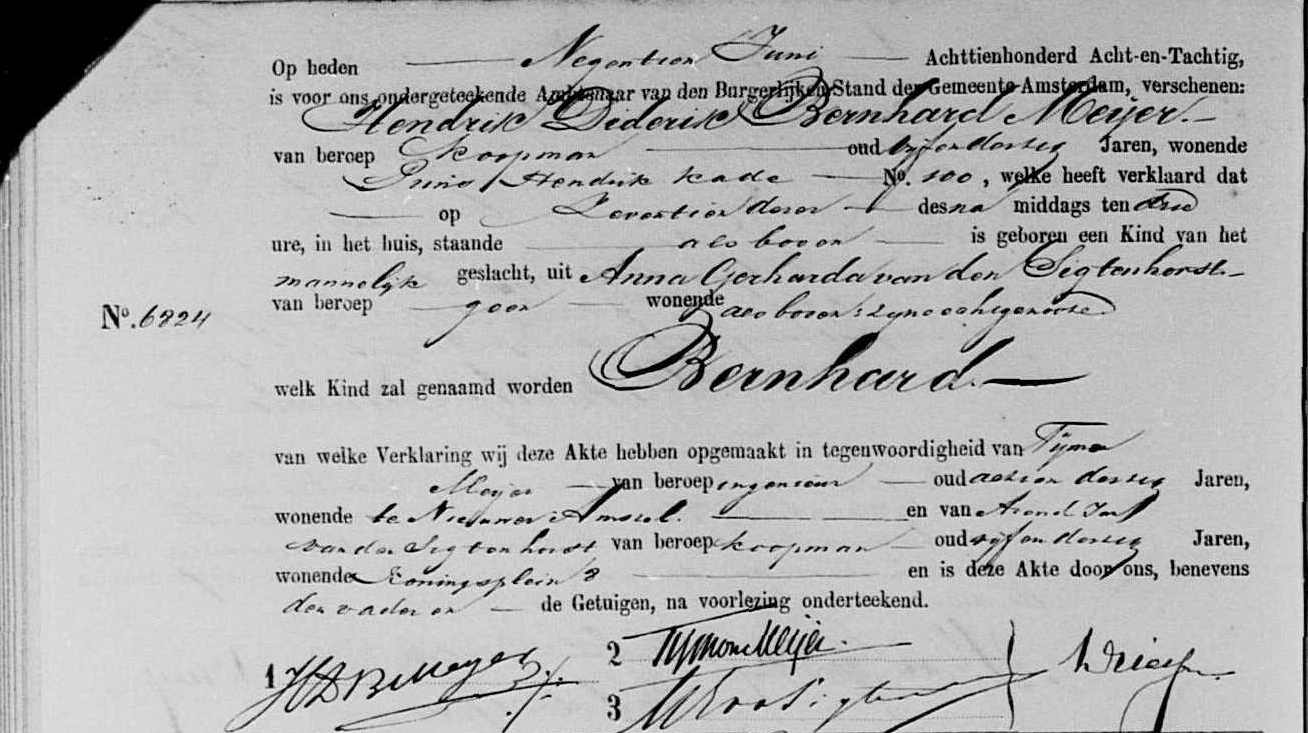 Op heden Negentien Juni Achttienhonderd Acht-en-Tachtig,
is voor ons ondergeteekende Ambtenaar van den Burgerlijken Stand der Gemeente Amsterdam, verschenen:
Hendrik Diderik Bernhard Meijer.
van beroep Koopman oud vijfendertig Jaren, wonende
Prins Hendrik kade No. 100, welke heeft verklaard dat
op Zeventien dezer des na middags ten drie
ure, in het huis, staande als boven is geboren een Kind van het
mannelijk geslacht, uit Anna Gerharda van den Sigtenhorst.
No. 6824 van beroep geen wonende als boven: zijne echtgenoote
welk Kind zal genaamd worden Bernhard.
van welke Verklaring wij deze Akte hebben opgemaakt in tegenwoordigheid van Tijmon
Meijer van beroep ingenieur oud achtendertig Jaren,
wonende te Nieuwer Amstel. en van Arend
van der Sigtenhorst van beroep koopman oud vijfendertig Jaren,
wonende Koningsplein 8 en is deze Akte door ons, benevens
den vader en de Getuigen, na voorlezing onderteekend.
1 HDBMeyer 2 Tijmon Meijer.
3